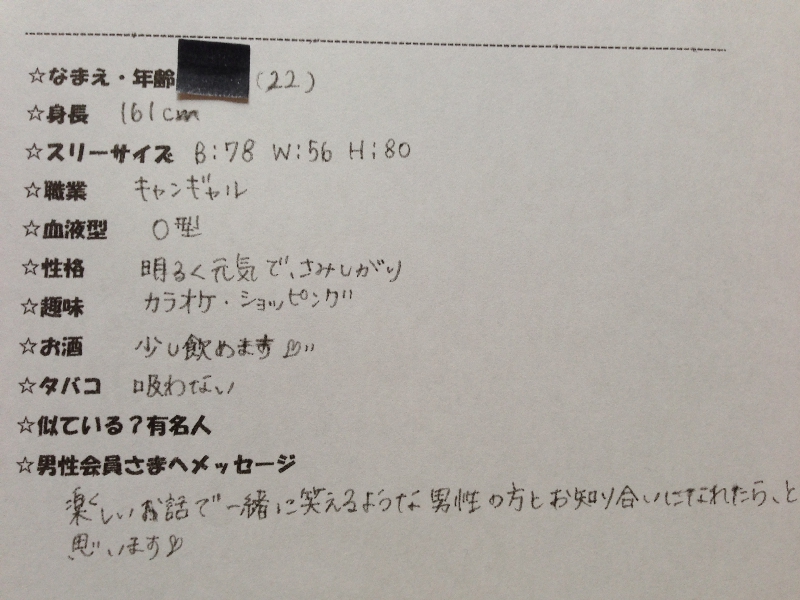 ☆なまえ・年齢 (22)
☆身長 161cm
☆スリーサイズ B:78 W:56 H:80
☆職業 キャンギャル
☆血液型 O型
☆性格 明るく元気で、さみしがり
☆趣味 カラオケ・ショッピング
☆お酒 少し飲めます♡
☆タバコ 吸わない
☆似ている?有名人
☆男性会員さまへメッセージ
楽しいお話で一緒に笑えるような男性の方とお知り合いになれたら、と
思います♡